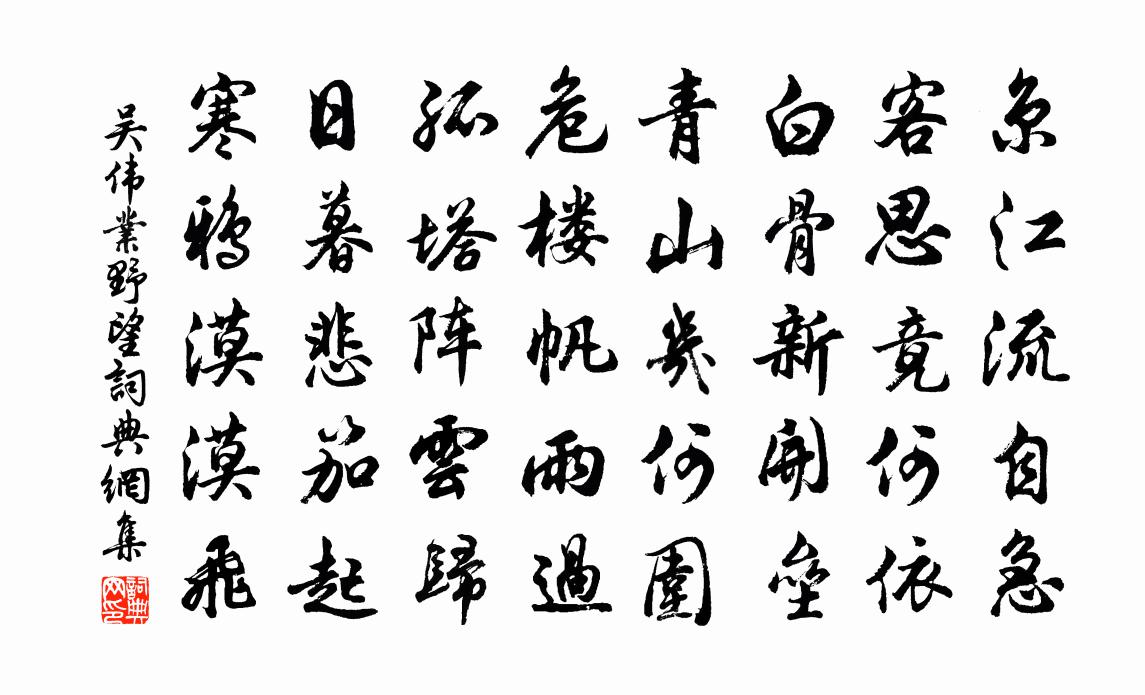 京江流自急
客思竟何依
白骨新開壘
青山幾何圍
危楼帆雨過
孤塔阵雲歸
日暮悲笳起
寒鴉漠漠飛
吴伟業野望詞典網集
詞典网印